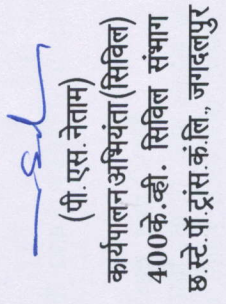 (पी. एस. नेताम)
कार्यपालन अभियंता (सिविल)
400के.व्ही. सिविल संभाग
छ.स्टे.पॉ.ट्रांस.कं.लि., जगदलपुर